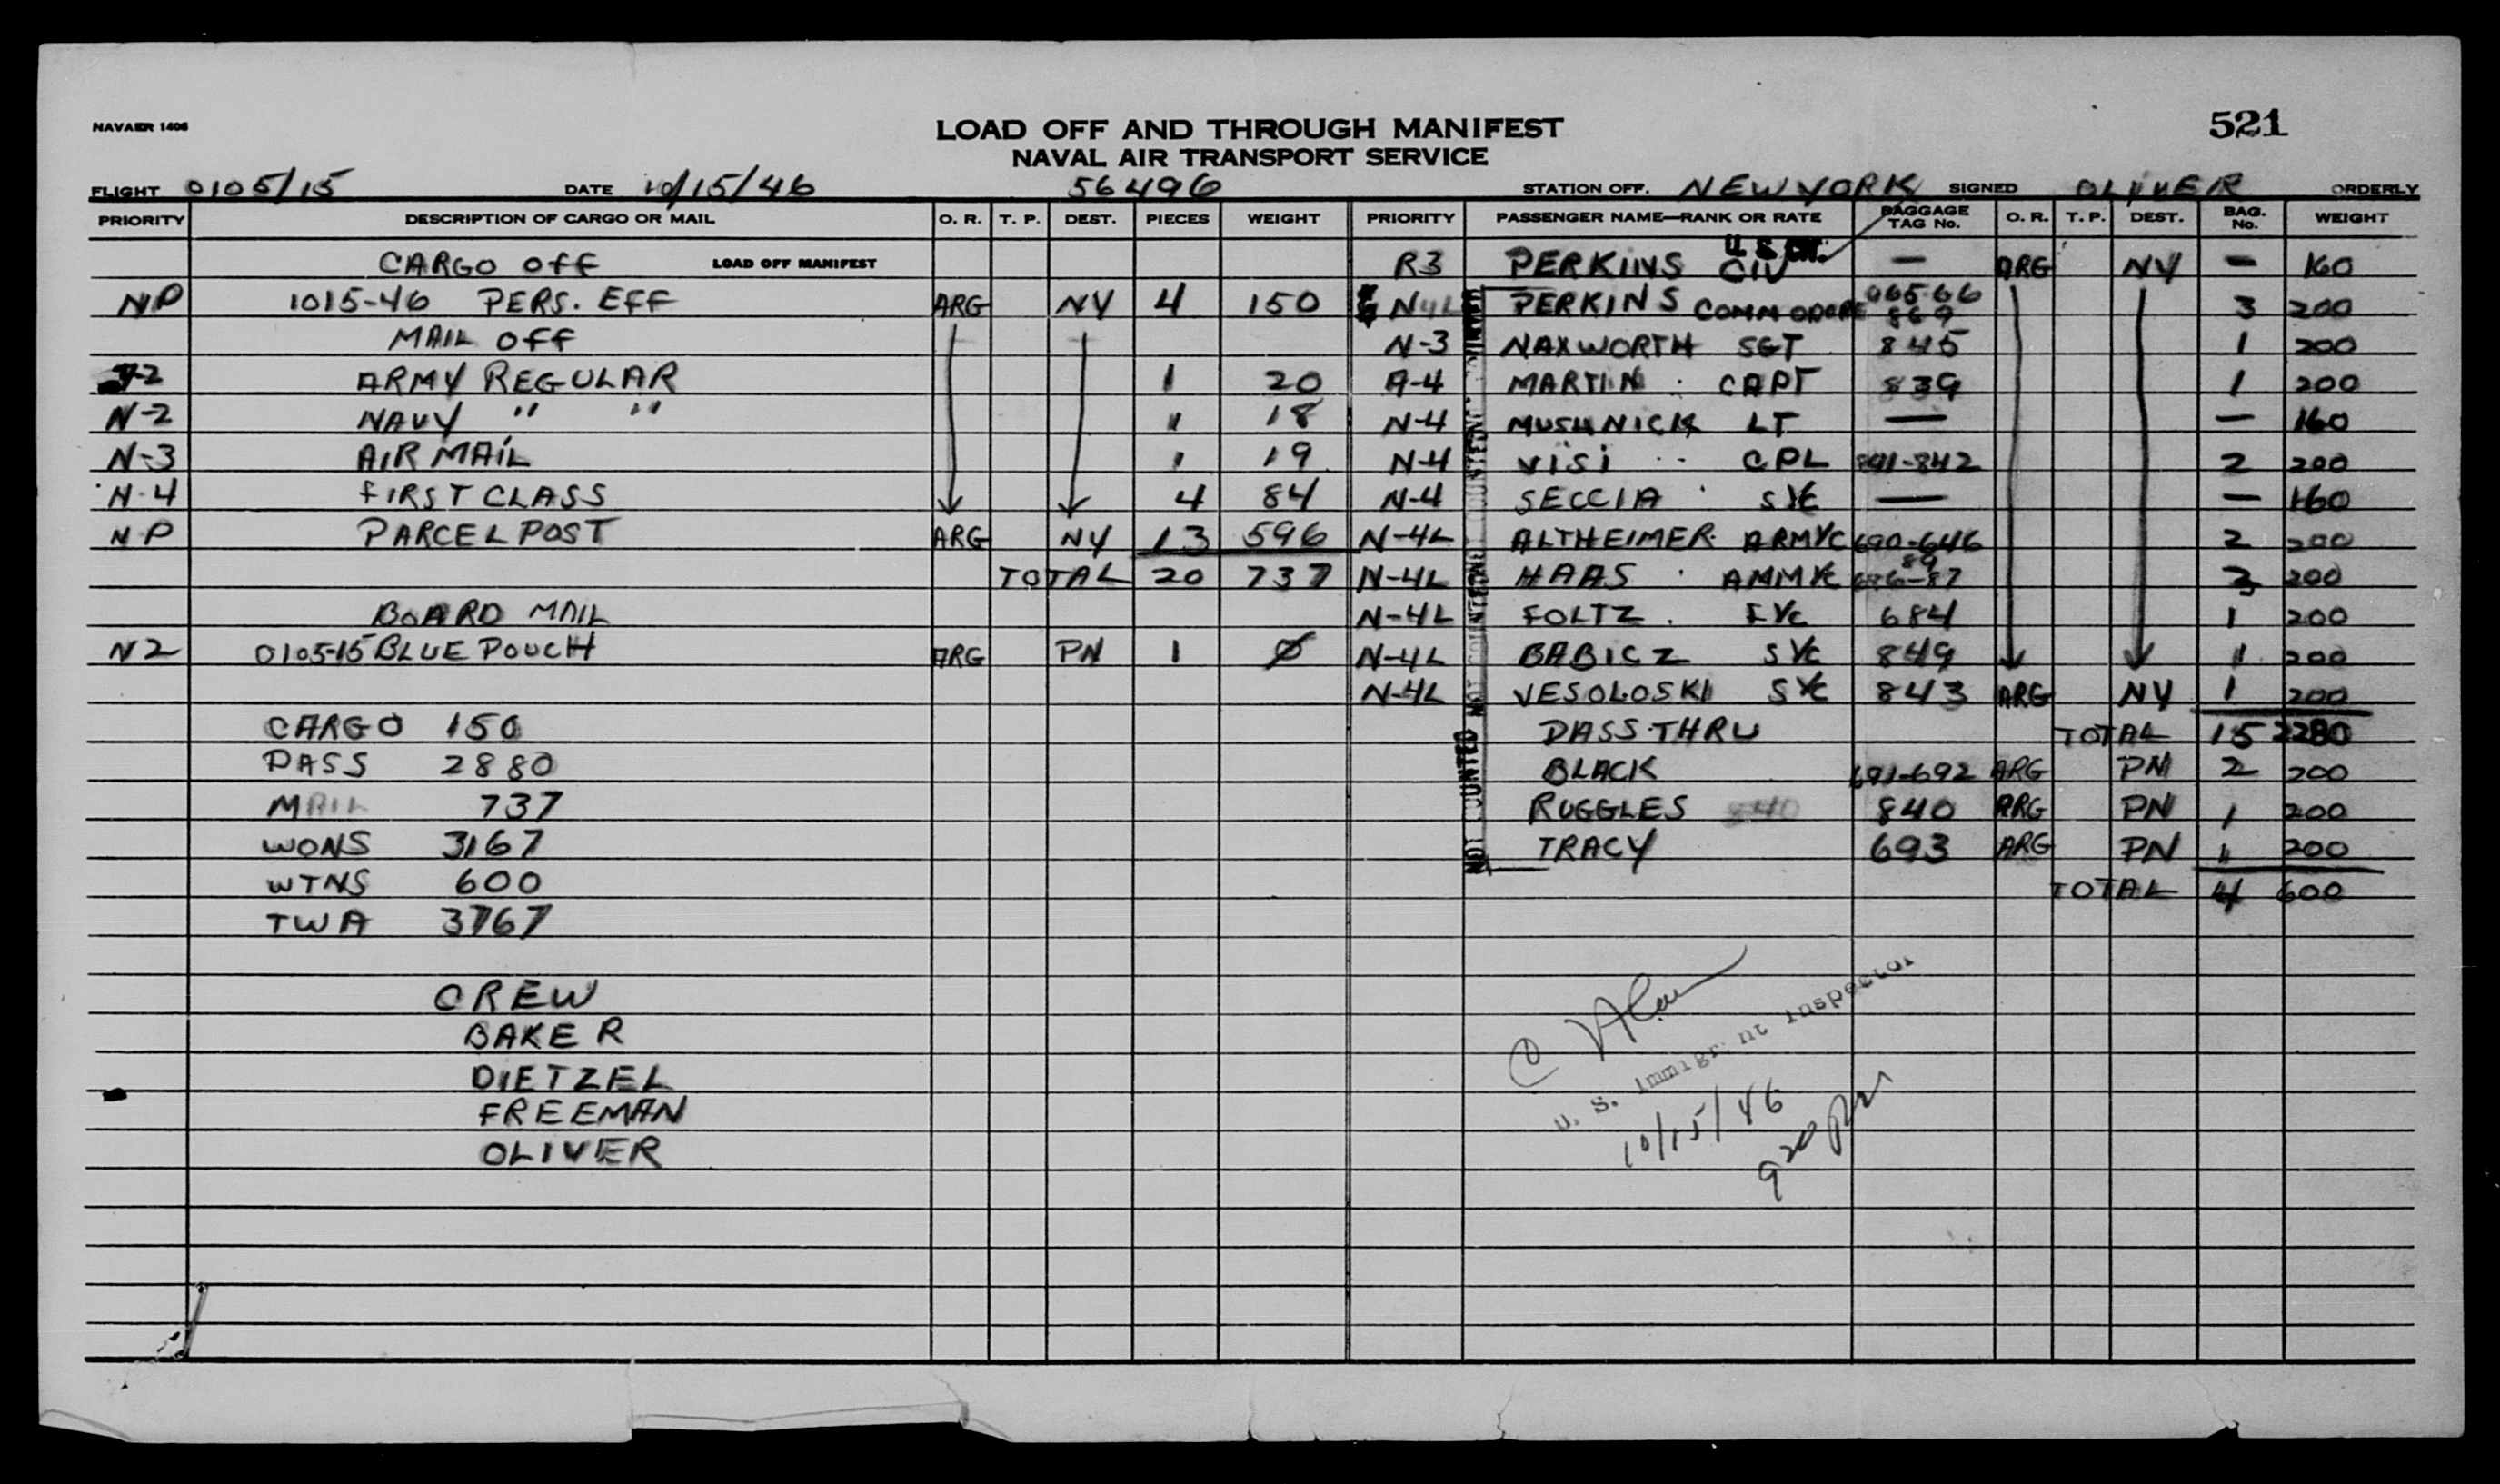 NAVAER 1406
LOAD OFF AND THROUGH MANIFEST
521
NAVAL AIR TRANSPORT SERVICE
FLIGHT 0105/15 DATE 10/15/46 56496 STATION OFF. NEW YORK SIGNED OLIVER ORDERLY
PRIORITY DESCRIPTION OF CARGO OR MAIL O. R. T. P. DEST. PIECES WEIGHT
CARGO OFF LOAD OFF MANIFEST
NP 1015-46 PERS. EFF ARG NY 4 150
MAIL OFF
ARMY REGULAR 1 20
N-2 NAVY " " 1 18
N-3 AIR MAIL 1 19
N-4 FIRST CLASS 4 84
NP PARCEL POST ARG NY 13 596
TOTAL 20 737
BOARD MAIL
N2 0105-15 BLUE POUCH ARG PN 1 Ø
CARGO 150
PASS 2880
MAIL 737
WONS 3167
WTNS 600
TWA 3767
CREW
BAKER
DIETZEL
FREEMAN
OLIVER
PRIORITY PASSENGER NAME—RANK OR RATE BAGGAGE TAG No. O. R. T. P. DEST. BAG. No. WEIGHT
R3 PERKINS CIV U.S. — ARG NY — 160
N4L PERKINS COMMODORE 869 3 200
N-3 NAXWORTH SGT 845 1 200
A-4 MARTIN CAPT 839 1 200
N-4 MUSHNICK LT — — 160
N-4 VISI CPL 842 2 200
N-4 SECCIA — — 160
N-4L ALTHEIMER 690-646 2 200
N-4L HAAS 3 200
N-4L FOLTZ 684 1 200
N-4L BABICZ 849 1 200
N-4L VESOLOSKI 843 ARG NY 1 200
PASS THRU TOTAL 15 2280
BLACK 691-692 ARG PN 2 200
RUGGLES 840 840 ARG PN 1 200
TRACY 693 ARG PN 1 200
TOTAL 4 600
NOT COUNTED
U. S. Immigrant Inspector
10/15/46
9 20 PM